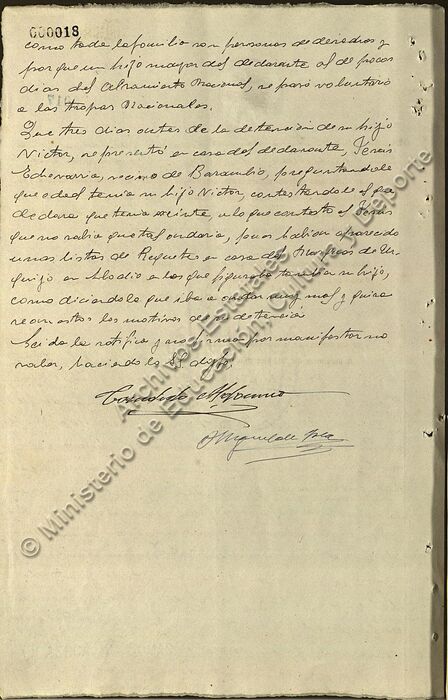 000018
como toda la familia son personas de derechas y
porque un hijo mayor del declarante al de pocos
dias del Alzamiento Nacional, se pasó voluntario
a las tropas Nacionales.
Que tres dias antes de la detención de su hijo
Victor, se presentó en casa del declarante Jesús
Echevarria, vecino de Barambio, preguntandole
que edad tenia su hijo Victor, contestandole el
declara que tenia veinte, a lo que contestó el Jesus
que no sabia que tal andaria, pues habian aparecido
unas listas de Requetes en casa del Marques de Ur-
quijo en Llodio en las que figuraba tambien su hijo,
como diciendole que iba a andar muy mal y quiza
sean estos los motivos de su detencion
Leida la ratifica y no firma por manifestar no
saber, haciendolo S.S. doy fe.
© Ministerio de Educación, Cultura y Deporte
Archivos Estatales